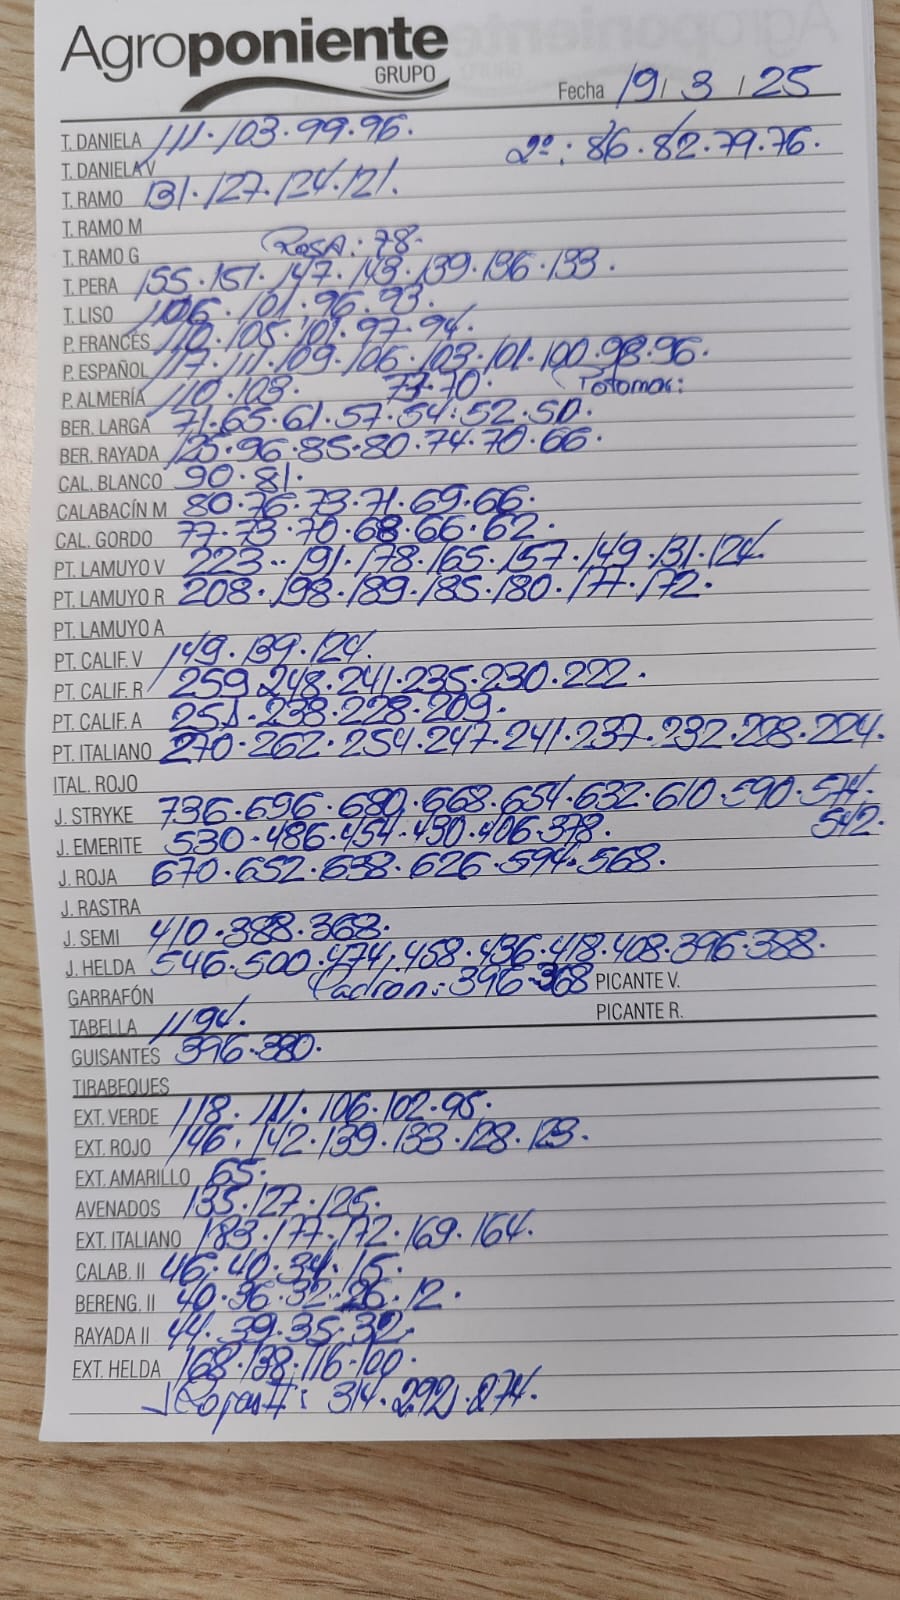 Agroponiente
GRUPO
Fecha 19/ 3 / 25
T. DANIELA 111·103·99·96.
2º: 86·82·79·76.
T. DANELA V
T. RAMO 131·127·124·121.
T. RAMO M
T. RAMO G Rosa: 78.
T. PERA 155·151·147·143·139·136·133.
T. LISO 106·101·96·93.
P. FRANCÉS 110·105·101·97·94.
P. ESPAÑOL 117·111·109·106·103·101·100·98·96.
P. ALMERÍA 110·103. 77·70. Totomac:
BER. LARGA 71·65·61·57·54·52·50.
BER. RAYADA 125·96·85·80·74·70·66.
CAL. BLANCO 90·81.
CALABACÍN M 80·76·73·71·69·66.
CAL. GORDO 77·73·70·68·66·62.
PT. LAMUYO V 223··191·178·165·157·149·131·124.
PT. LAMUYO R 208·198·189·185·180·177·172.
PT. LAMUYO A
PT. CALIF. V 149·139·124.
PT. CALIF. R 259 248·241·235·230·222.
PT. CALIF. A 251·238·228·209.
PT. ITALIANO 270·262·254·247·241·237·232·228·224.
ITAL. ROJO
J. STRYKE 736·696·680·668·654·632·610·590·574.
J. EMERITE 530·486·454·430·406·378. 542.
J. ROJA 670·652·638·626·594·568.
J. RASTRA
J. SEMI 410·388·368.
J. HELDA 546·500·474·458·436·418·408·396·388.
GARRAFÓN Padron: 396·368 PICANTE V.
TABELLA 1194. PICANTE R.
GUISANTES 396·380.
TIRABEQUES
EXT. VERDE 118·111·106·102·95.
EXT. ROJO 146·142·139·133·128·123.
EXT. AMARILLO 65.
AVENADOS 135·127·125.
EXT. ITALIANO 183·177·172·169·164.
CALAB. II 46·40·34·15.
BERENG. II 40·36·32·26·12.
RAYADA II 44·39·35·32.
EXT. HELDA 168·138·116·100.
314·292·274.